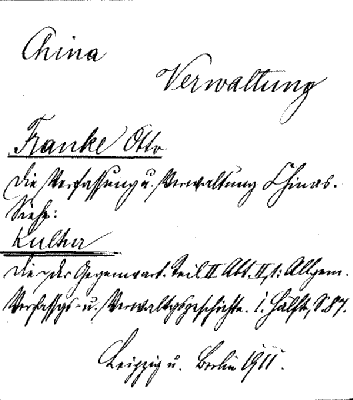 China
Verwaltung
Franke Otto
Die Verfassung u. Verwaltung Chinas.
Siehe:
Kultur
Die, der Gegenwart. Teil II Abt. II, 1: Allgem.
Verfassgs- u. Verwaltgsgeschichte. 1. Hälfte, S. 87.
Leipzig u. Berlin 1911.